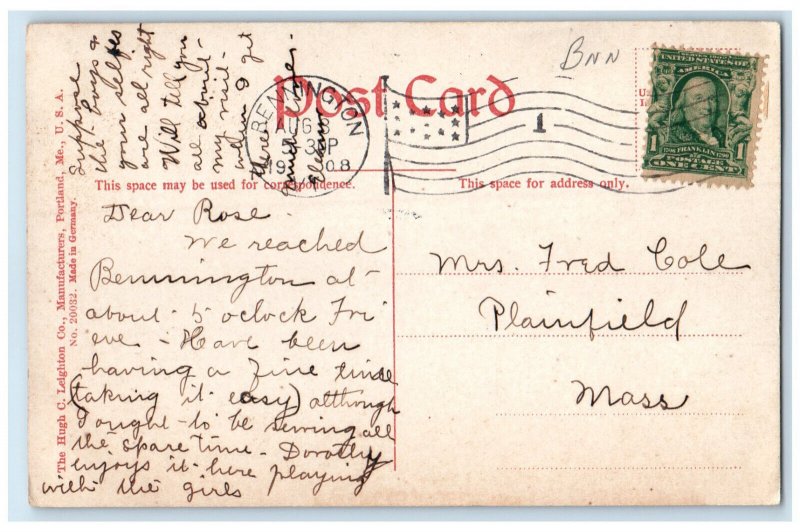 Post Card
BNN
BENNINGTON
AUG 8
3 30P
1908
1
UNITED STATES OF
AMERICA
FRANKLIN
POSTAGE
1 ONE CENT 1
This space may be used for correspondence.
This space for address only.
Dear Rose.
We reached
Bennington at
about 5 oclock Fri
eve - Have been
having a fine time
(taking it easy) although
I ought to be sewing all
the spare time. Dorothy
enjoys it here playing
with the girls
Suppose
the boys &
your selfes
are all right
Will tell you
all about
my visit
when I get
there
much love.
Mrs. Fred Cole
Plainfield
Mass
The Hugh C. Leighton Co., Manufacturers, Portland, Me., U. S. A.
No. 20032. Made in Germany.